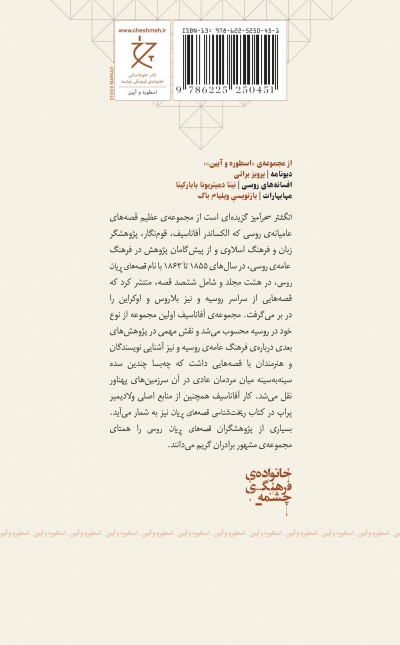 www.cheshmeh.ir
نشر علوم‌انسانی
خانواده‌ی فرهنگی چشمه
اسطوره و آیین
ISBN-13: 978-622-5250-45-1
9 786225 250451
از مجموعه‌ی «اسطوره و آیین»:
دیونامه | پرویز براتی
افسانه‌های روسی | نینا دمیتریونا بابارکینا
مهابهارات | بازنویسی ویلیام باک
انگشتر سحرآمیز گزیده‌ای است از مجموعه‌ی عظیم قصه‌های
عامیانه‌ی روسی که الکساندر آفاناسیف، قوم‌نگار، پژوهشگر
زبان و فرهنگ اسلاوی و از پیش‌گامان پژوهش در فرهنگ
عامه‌ی روسی، در سال‌های ۱۸۵۵ تا ۱۸۶۳ با نام قصه‌های پریان
روسی، در هشت مجلد و شامل ششصد قصه، منتشر کرد که
قصه‌هایی از سراسر روسیه و نیز بلاروس و اوکراین را
در بر می‌گرفت. مجموعه‌ی آفاناسیف اولین مجموعه از نوع
خود در روسیه محسوب می‌شد و نقش مهمی در پژوهش‌های
بعدی درباره‌ی فرهنگ عامه‌ی روسیه و نیز آشنایی نویسندگان
و هنرمندان با قصه‌هایی داشت که چه‌بسا چندین سده
سینه‌به‌سینه میان مردمان عادی در آن سرزمین‌های پهناور
نقل می‌شد. کار آفاناسیف همچنین از منابع اصلی ولادیمیر
پراپ در کتاب ریخت‌شناسی قصه‌های پریان نیز به شمار می‌آید.
بسیاری از پژوهشگران قصه‌های پریان روسی را همتای
مجموعه‌ی مشهور برادران گریم می‌دانند.
خانواده‌ی
فرهنگی
چشمه
اسطوره و آیین . اسطوره و آیین . اسطوره و آیین . اسطوره و آیین . اسطوره و آیین . اسطوره و آیین . اسطوره و آیین . اسطوره و آیین